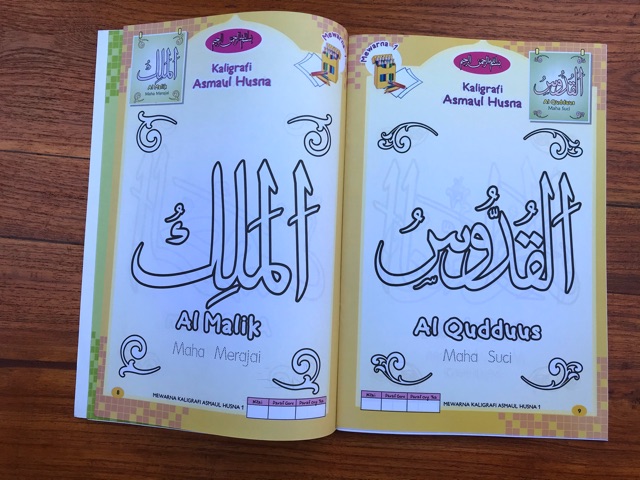 الملك
Al Malik
Maha Merajai
بسم الله الرحمن الرحيم
Kaligrafi
Asmaul Husna
الْمَلِكُ
Al Malik
Maha Merajai
Nilai
Paraf Guru
Paraf Org Tua
8
MEWARNA KALIGRAFI ASMAUL HUSNA 1
Mewarna 1
بسم الله الرحمن الرحيم
Kaligrafi
Asmaul Husna
القدوس
Al Qudduus
Maha Suci
الْقُدُّوْسُ
Al Qudduus
Maha Suci
Nilai
Paraf Guru
Paraf Org Tua
MEWARNA KALIGRAFI ASMAUL HUSNA 1
9